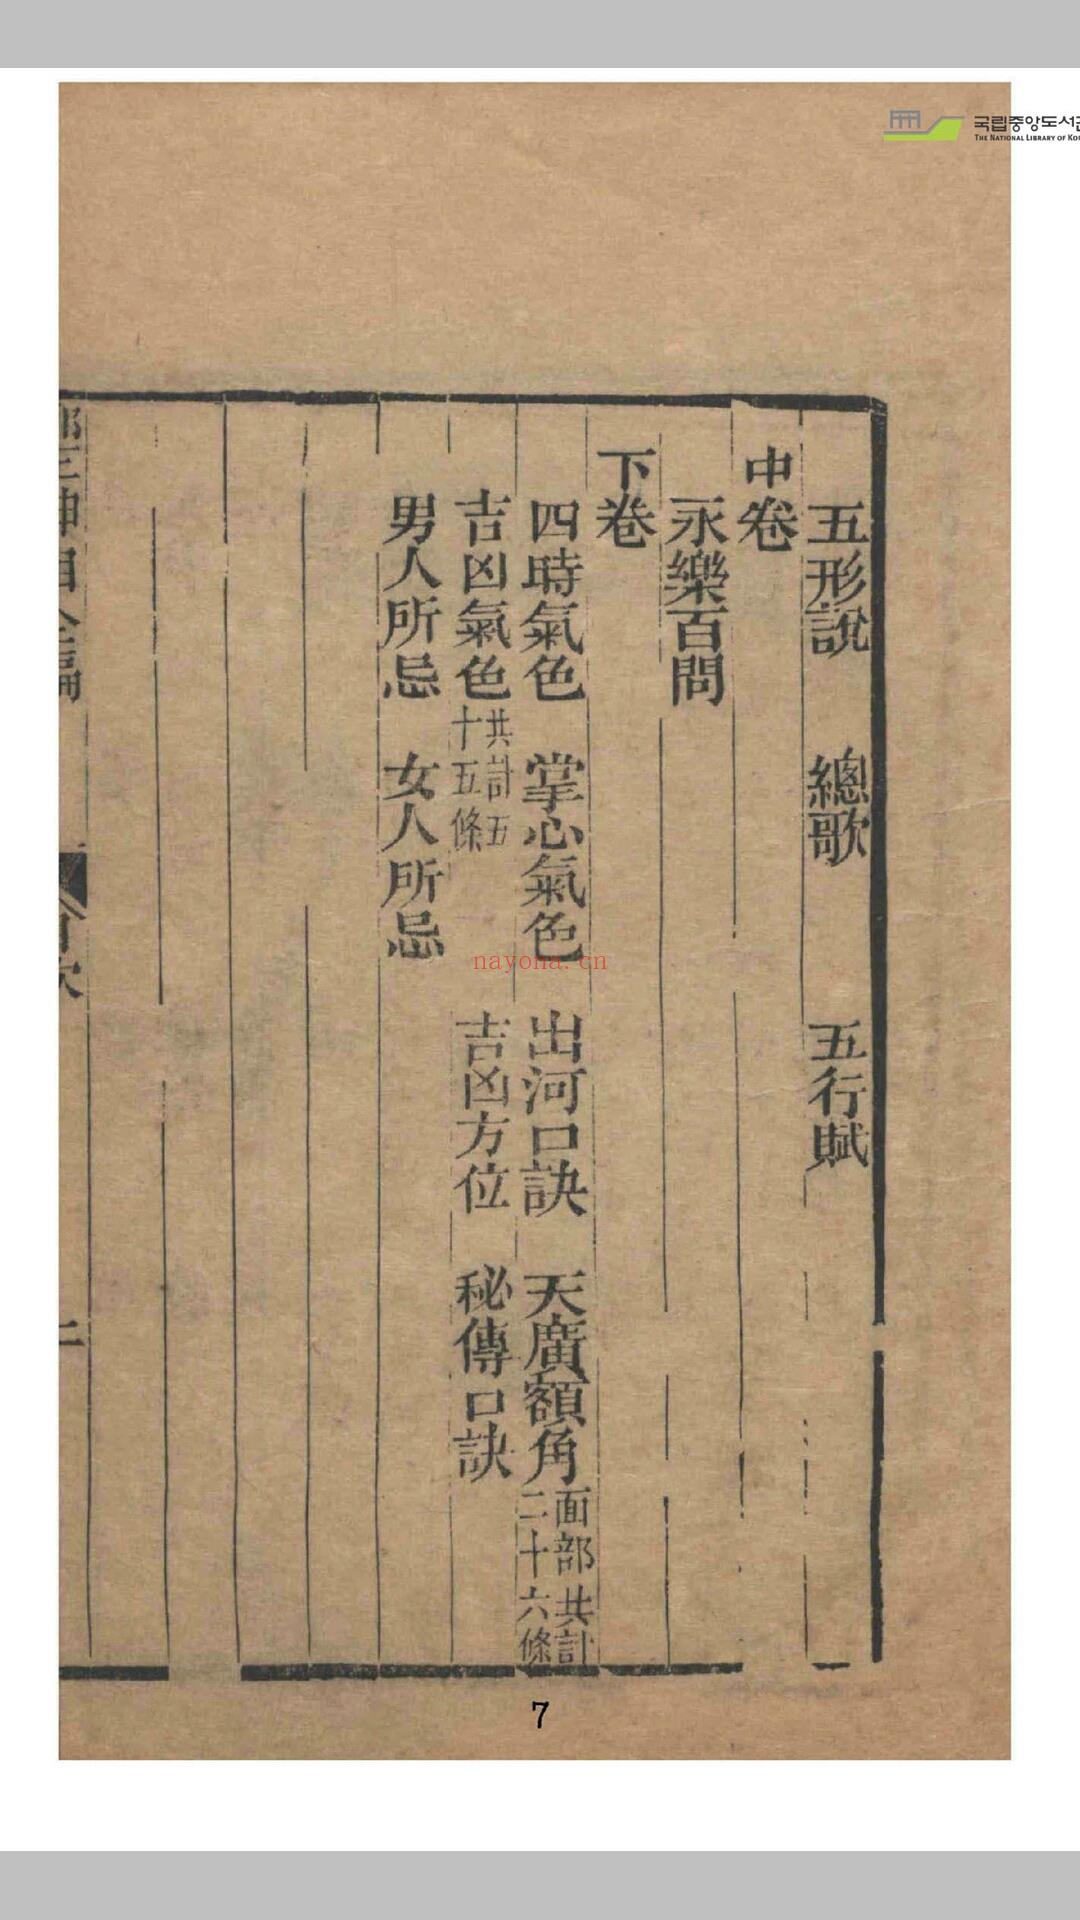 국립중앙도서관
THE NATIONAL LIBRARY OF KO
五形說 總歌 五行賦
中卷
永樂百問
下卷
四時氣色 掌心氣色 出河口訣 天廣額角 面部共計二十六條
吉凶氣色 共計五十五條 吉凶方位 秘傳口訣
男人所忌 女人所忌
目次
二
nayona.cn
7